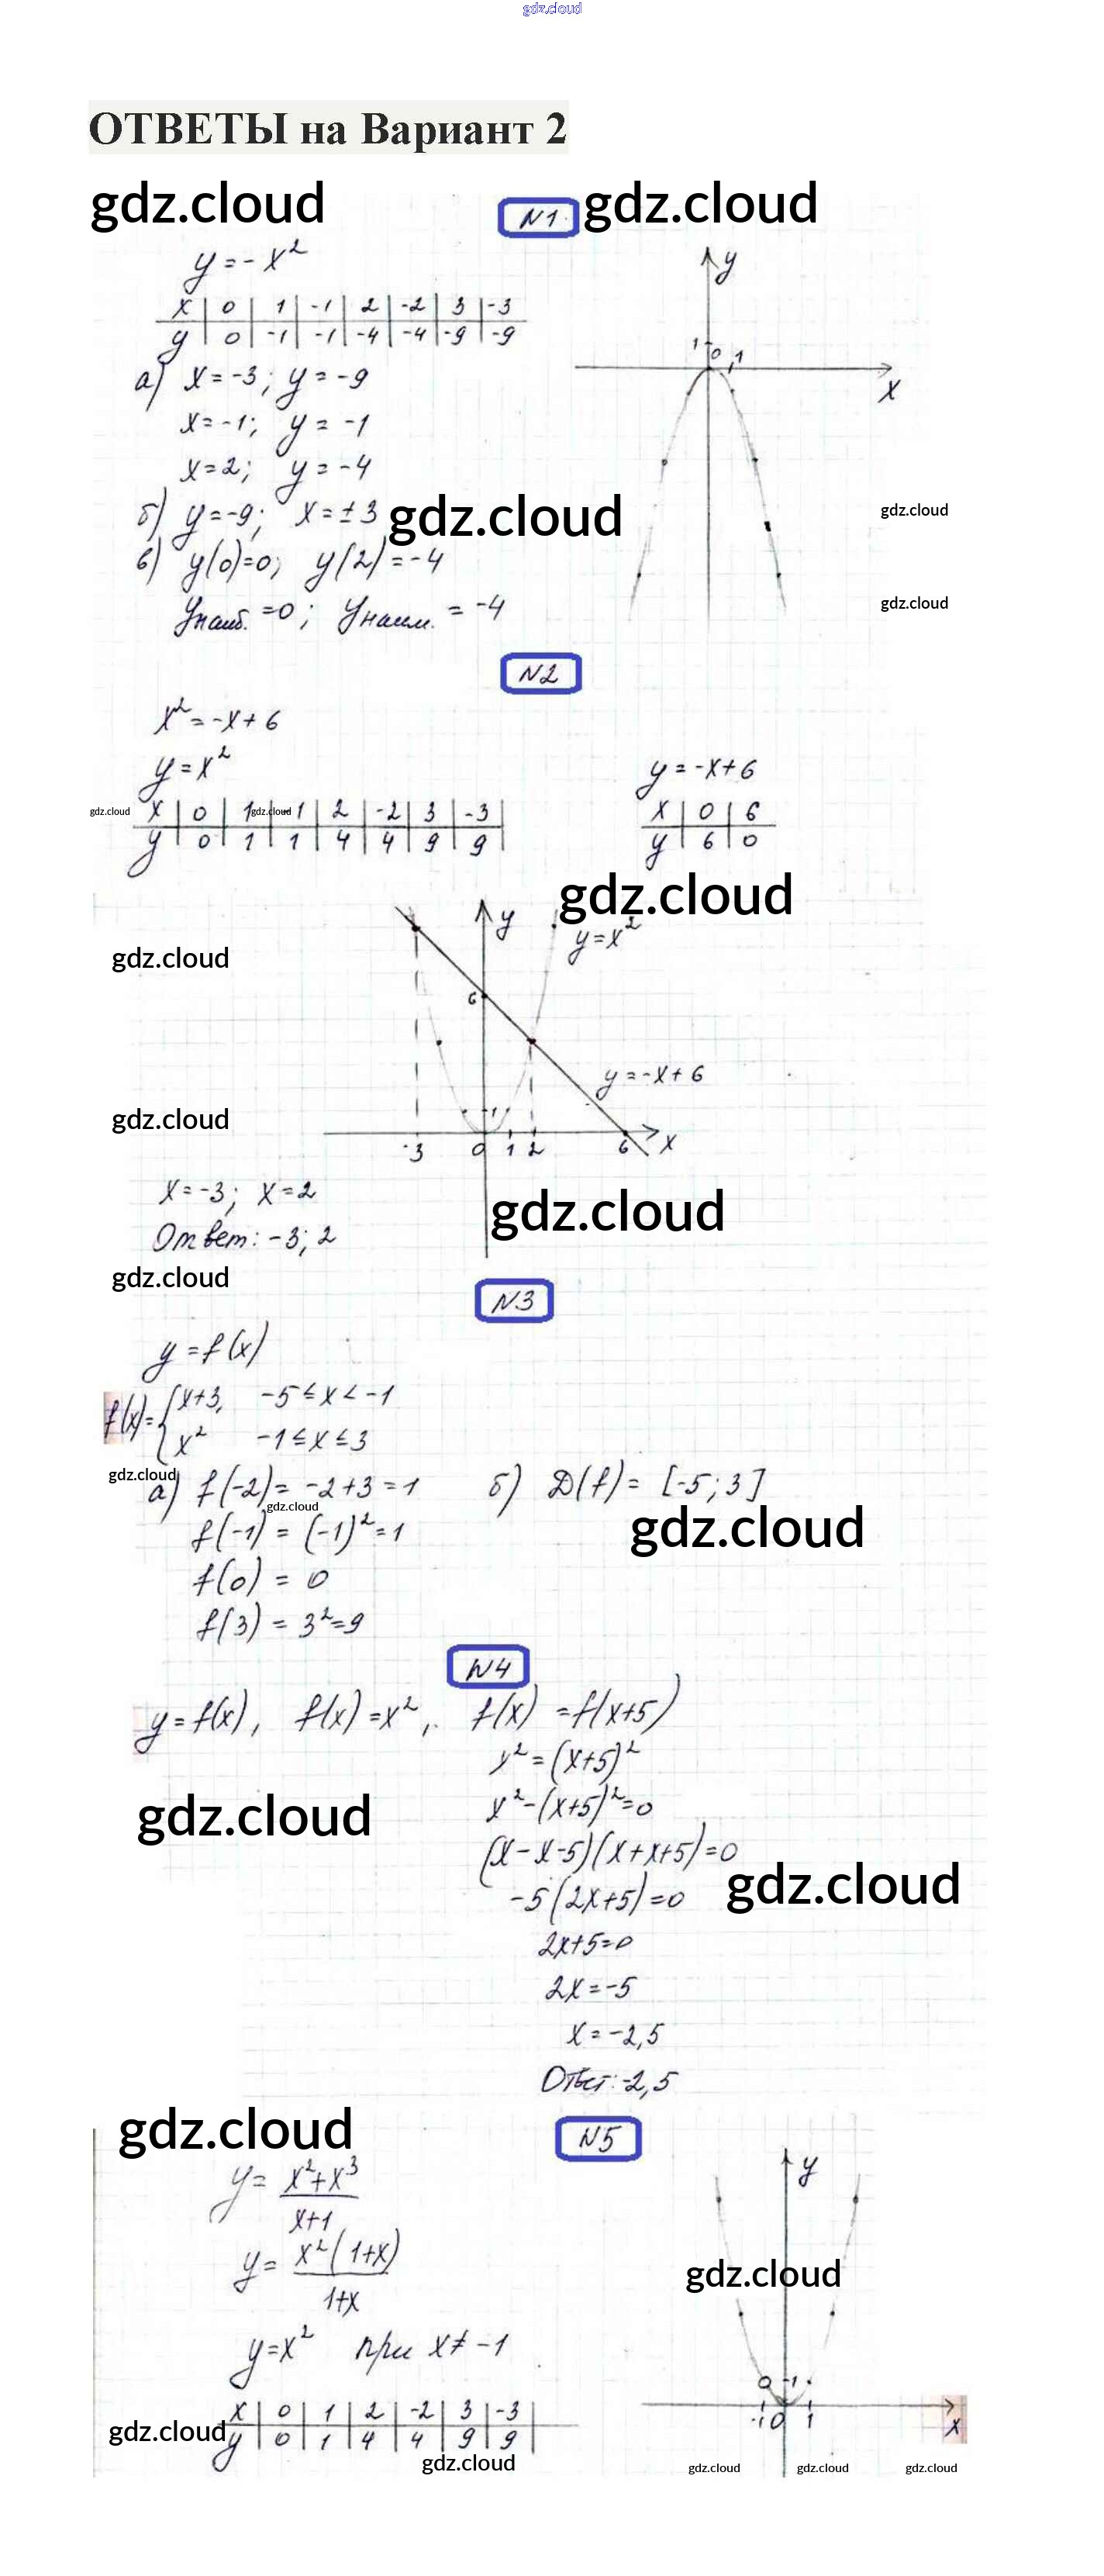 gdz.cloud
ОТВЕТЫ на Вариант 2
gdz.cloud N1 gdz.cloud
y = -x²
x | 0 | 1 | -1 | 2 | -2 | 3 | -3
y | 0 | -1 | -1 | -4 | -4 | -9 | -9
y
1 0 1
x
а) x = -3; y = -9
x = -1; y = -1
x = 2; y = -4
б) y = -9; x = ± 3 gdz.cloud
gdz.cloud
в) y(0)=0; y(2) = -4
gdz.cloud
yнаиб. = 0; yнаим. = -4
N2
x² = -x + 6
y = x²
y = -x + 6
gdz.cloud x | 0 | 1 | -1 | 2 | -2 | 3 | -3
gdz.cloud
y | 0 | 1 | 1 | 4 | 4 | 9 | 9
x | 0 | 6
y | 6 | 0
gdz.cloud
y
y = x²
gdz.cloud
6
y = -x + 6
gdz.cloud
1
-3 0 1 2 6 x
x = -3; x = 2
gdz.cloud
Ответ: -3; 2
gdz.cloud
N3
y = f(x)
f(x) = { x+3, -5 ≤ x < -1
x² -1 ≤ x ≤ 3
gdz.cloud
а) f(-2) = -2+3 = 1 б) D(f) = [-5; 3]
gdz.cloud
gdz.cloud
f(-1) = (-1)² = 1
f(0) = 0
f(3) = 3² = 9
N4
y = f(x), f(x) = x², f(x) = f(x+5)
x² = (x+5)²
x² - (x+5)² = 0
gdz.cloud
(x - x - 5)(x + x + 5) = 0
gdz.cloud
-5(2x+5) = 0
2x+5=0
2x = -5
x = -2,5
Ответ: -2,5
gdz.cloud
N5
y = x²+x³
x+1
y = x²(1+x)
1+x
y = x² при x ≠ -1
x | 0 | 1 | 2 | -2 | 3 | -3
gdz.cloud
y | 0 | 1 | 4 | 4 | 9 | 9
gdz.cloud
y
gdz.cloud
1
-1 0 1
x
gdz.cloud gdz.cloud gdz.cloud